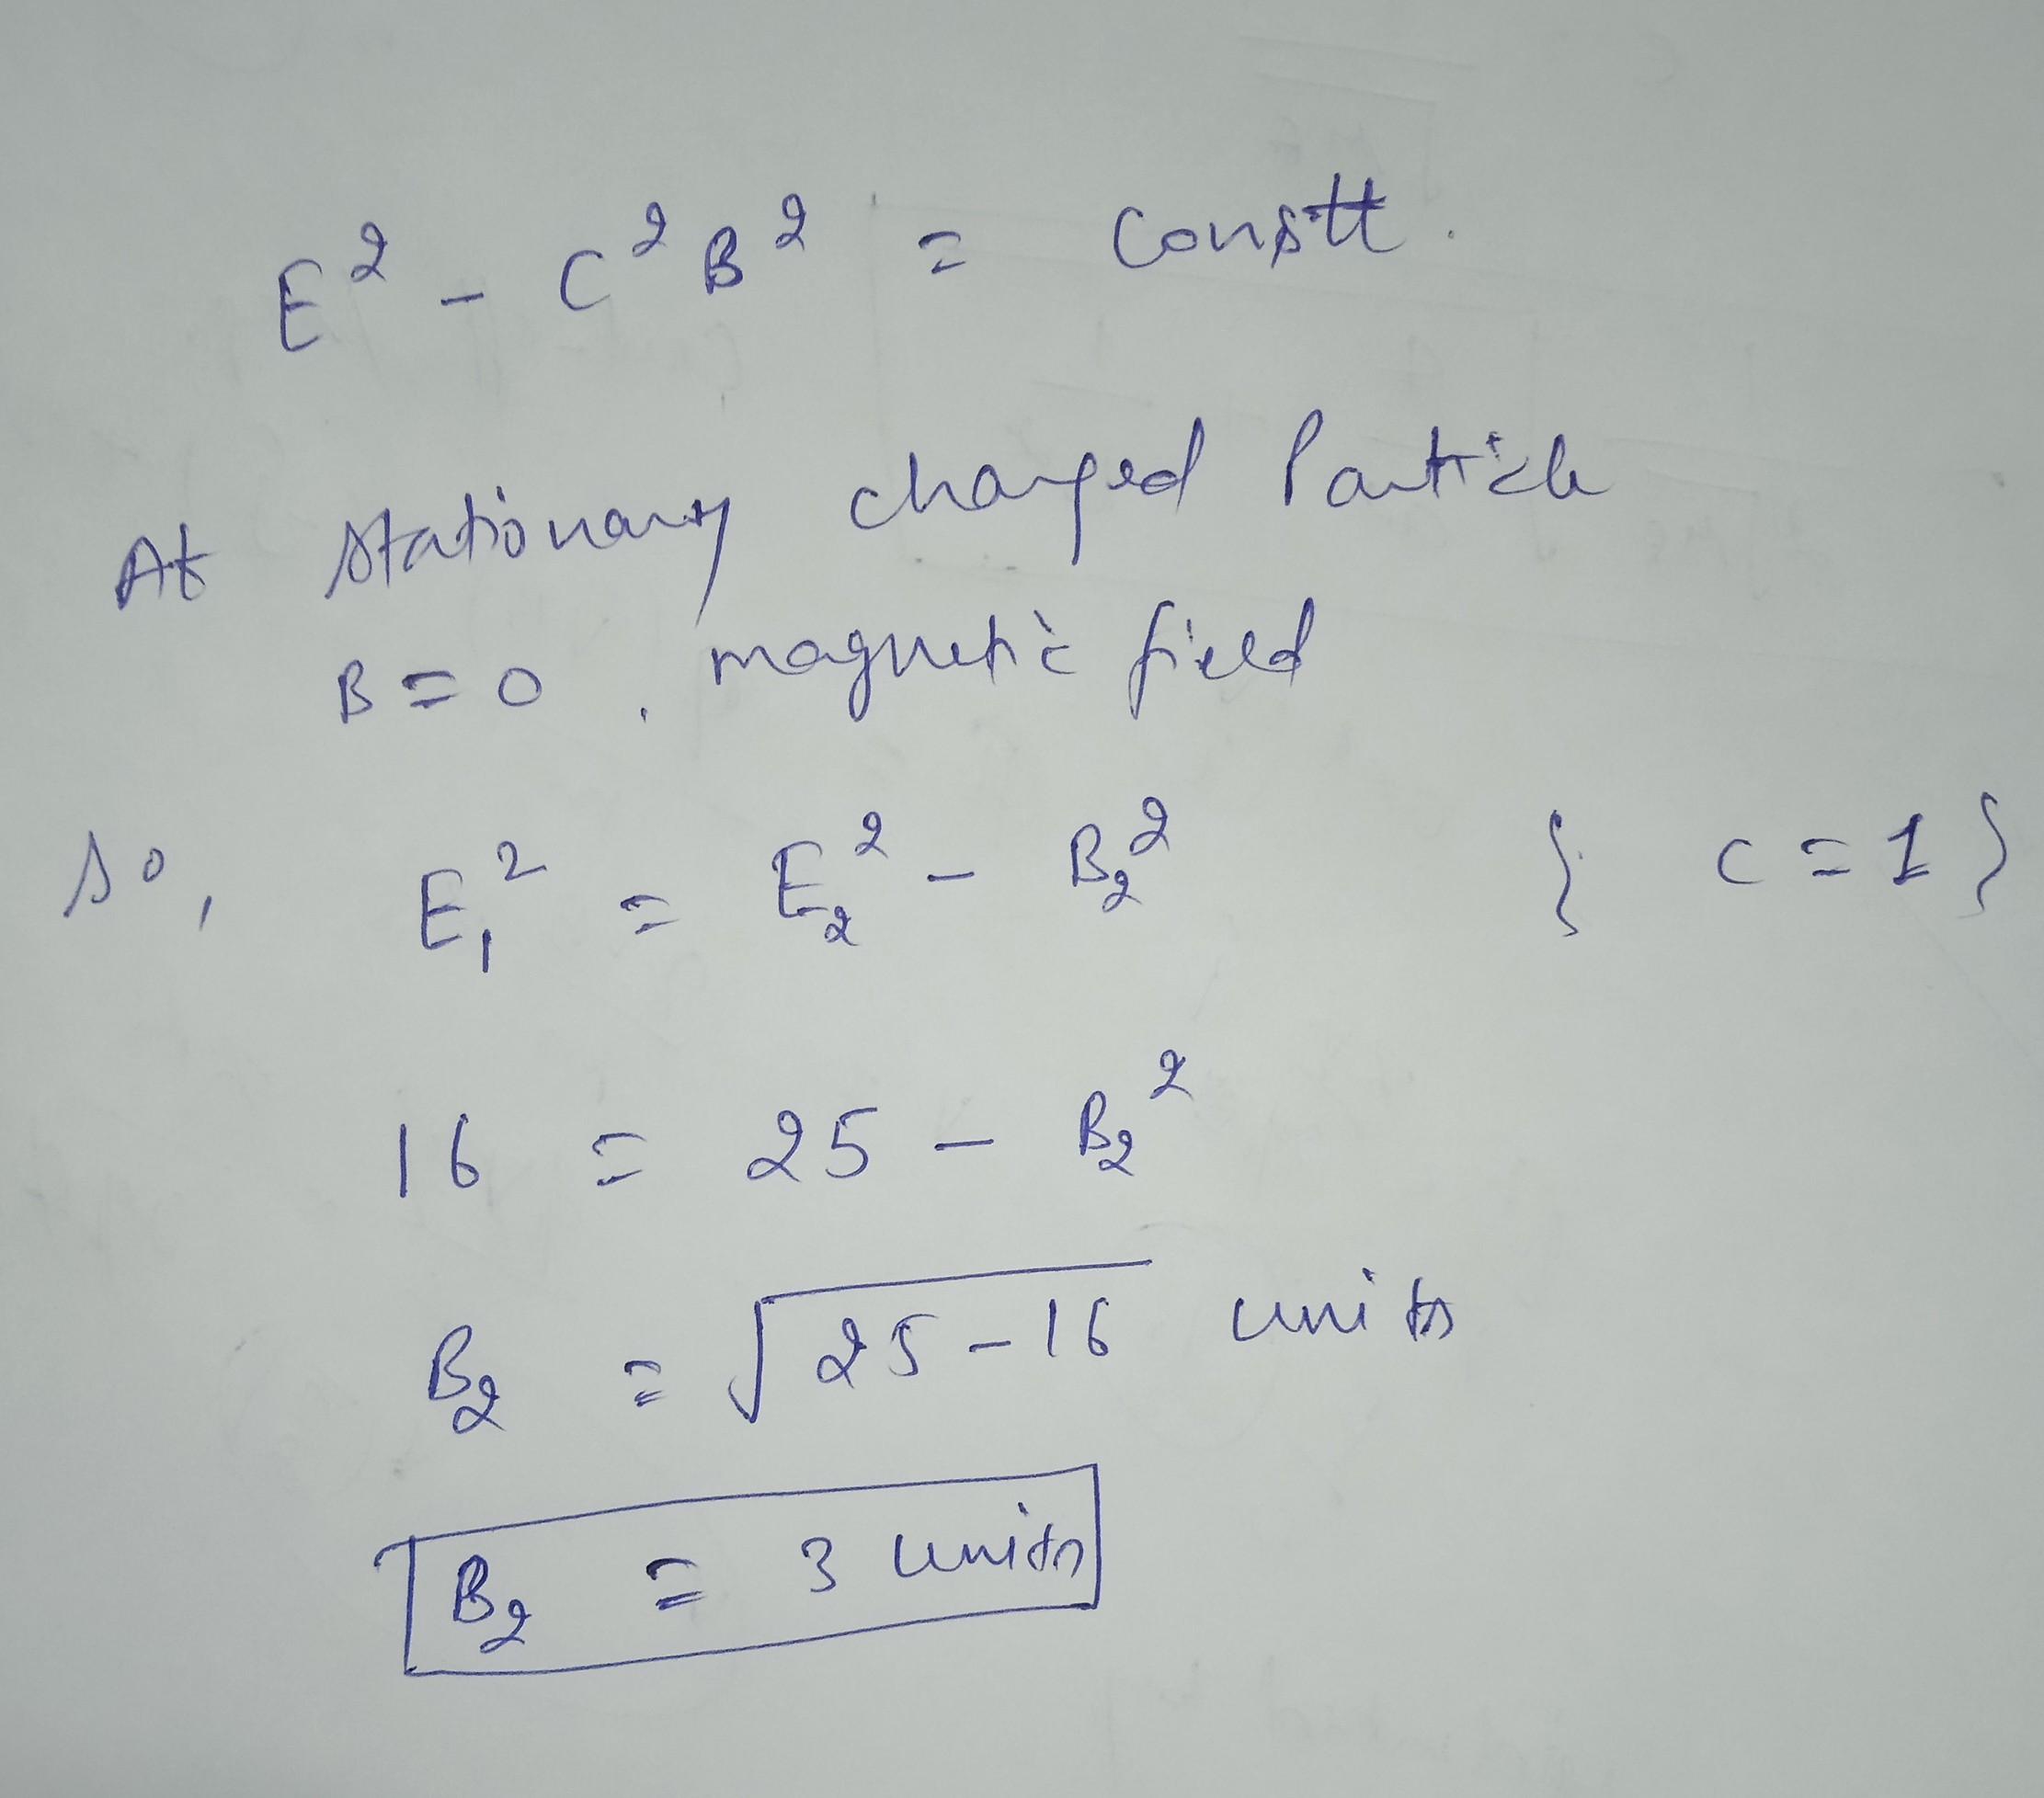 E² - C²B² = Constt.
At stationary charged Particle
B = 0, magnetic field
so, E₁² = E₂² - B₂² { c = 1 }
16 = 25 - B₂²
B₂ = √25-16 units
B₂ = 3 units